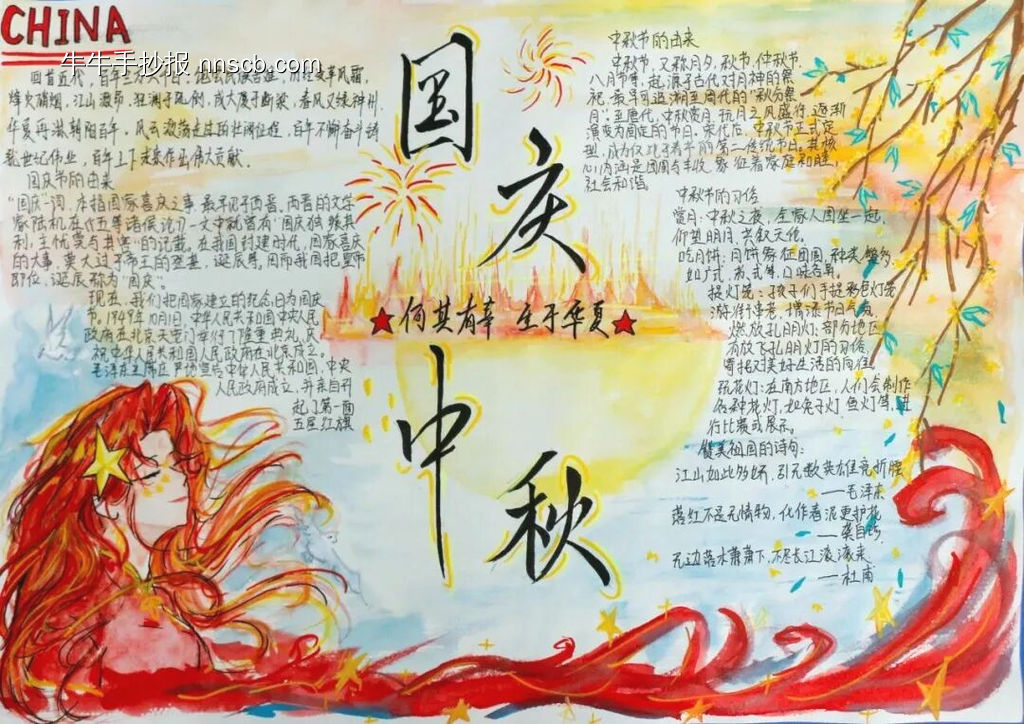 CHINA
牛牛手抄报 nnscb.com
回首近代，百年
烽火硝烟，江山激昂，狂澜于既倒，成大厦于断梁，春风又绿神州，
华夏再
百年，风云激荡走过的壮阔征程，百年不懈奋斗铸
就世纪伟业，百年上下求索作出伟大贡献。
国庆节的由来
“国庆”一词，本指国家喜庆之事，最早见于西晋。西晋的文学
家陆机在《五等诸侯论》一文中就曾有“国庆独飨其
利，主忧莫与其害”的记载。在我国封建时代，国家喜庆
的大事，莫大过于帝王的登基，诞辰等。因而我国把皇帝
即位，诞辰称为“国庆”。
现在，我们把国家建立的纪念日为国庆
节。1949年10月1日，中华人民共和国中央人民
政府在北京天安门举行了隆重典礼，庆
祝中华人民共和国人民政府在北京成立。
毛泽东主席庄严地宣告中华人民共和国，中央
人民政府成立，并亲自升
起了第一面
五星红旗
国庆
何其有幸 生于华夏
中秋
中秋节的由来
中秋节，又称月夕，秋节，仲秋节，
八月节等，起源于古代对月神的祭
祀，最早可追溯至周代的“秋分祭
月”。至唐代，中秋赏月、玩月之风盛行，逐渐
演变为固定的节日。宋代后，中秋节正式定
型，成为仅次于春节的第二传统节日。其核
心内涵是团圆与丰收，象征着家庭和睦，
社会和谐。
中秋节的习俗
赏月：中秋之夜，全家人围坐一起，
仰望明月，共叙天伦。
吃月饼：月饼象征团圆，种类繁多，
如广式，苏式等，口味各异。
提灯笼：孩子们手提彩色灯笼
游行
增添节日气氛
燃放孔明灯：部分地区
有放飞孔明灯的习俗，
寄托对美好生活的向往
玩花灯：在南方地区，人们会制作
各种花灯，如兔子灯 鱼灯等，进
行比赛或展示。
赞美祖国的诗句：
江山如此多娇，引无数英雄竞折腰
——毛泽东
落红不是无情物，化作春泥更护花
——龚自珍
无边落木萧萧下，不尽长江滚滚来
——杜甫